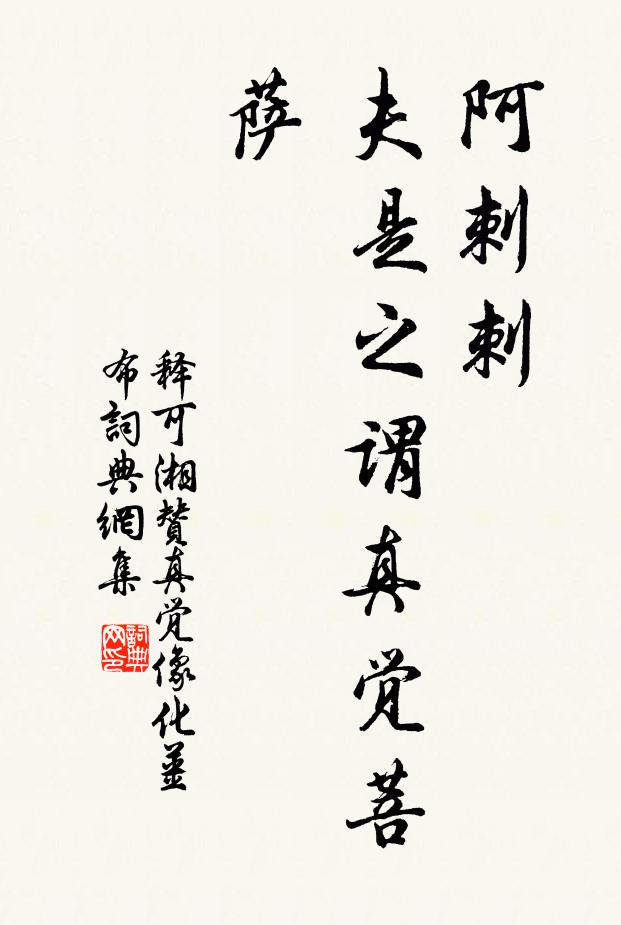 阿刺刺
夫是之谓真觉菩
萨
释可湘赞真觉像化姜
布詞典網集
詞典
网印